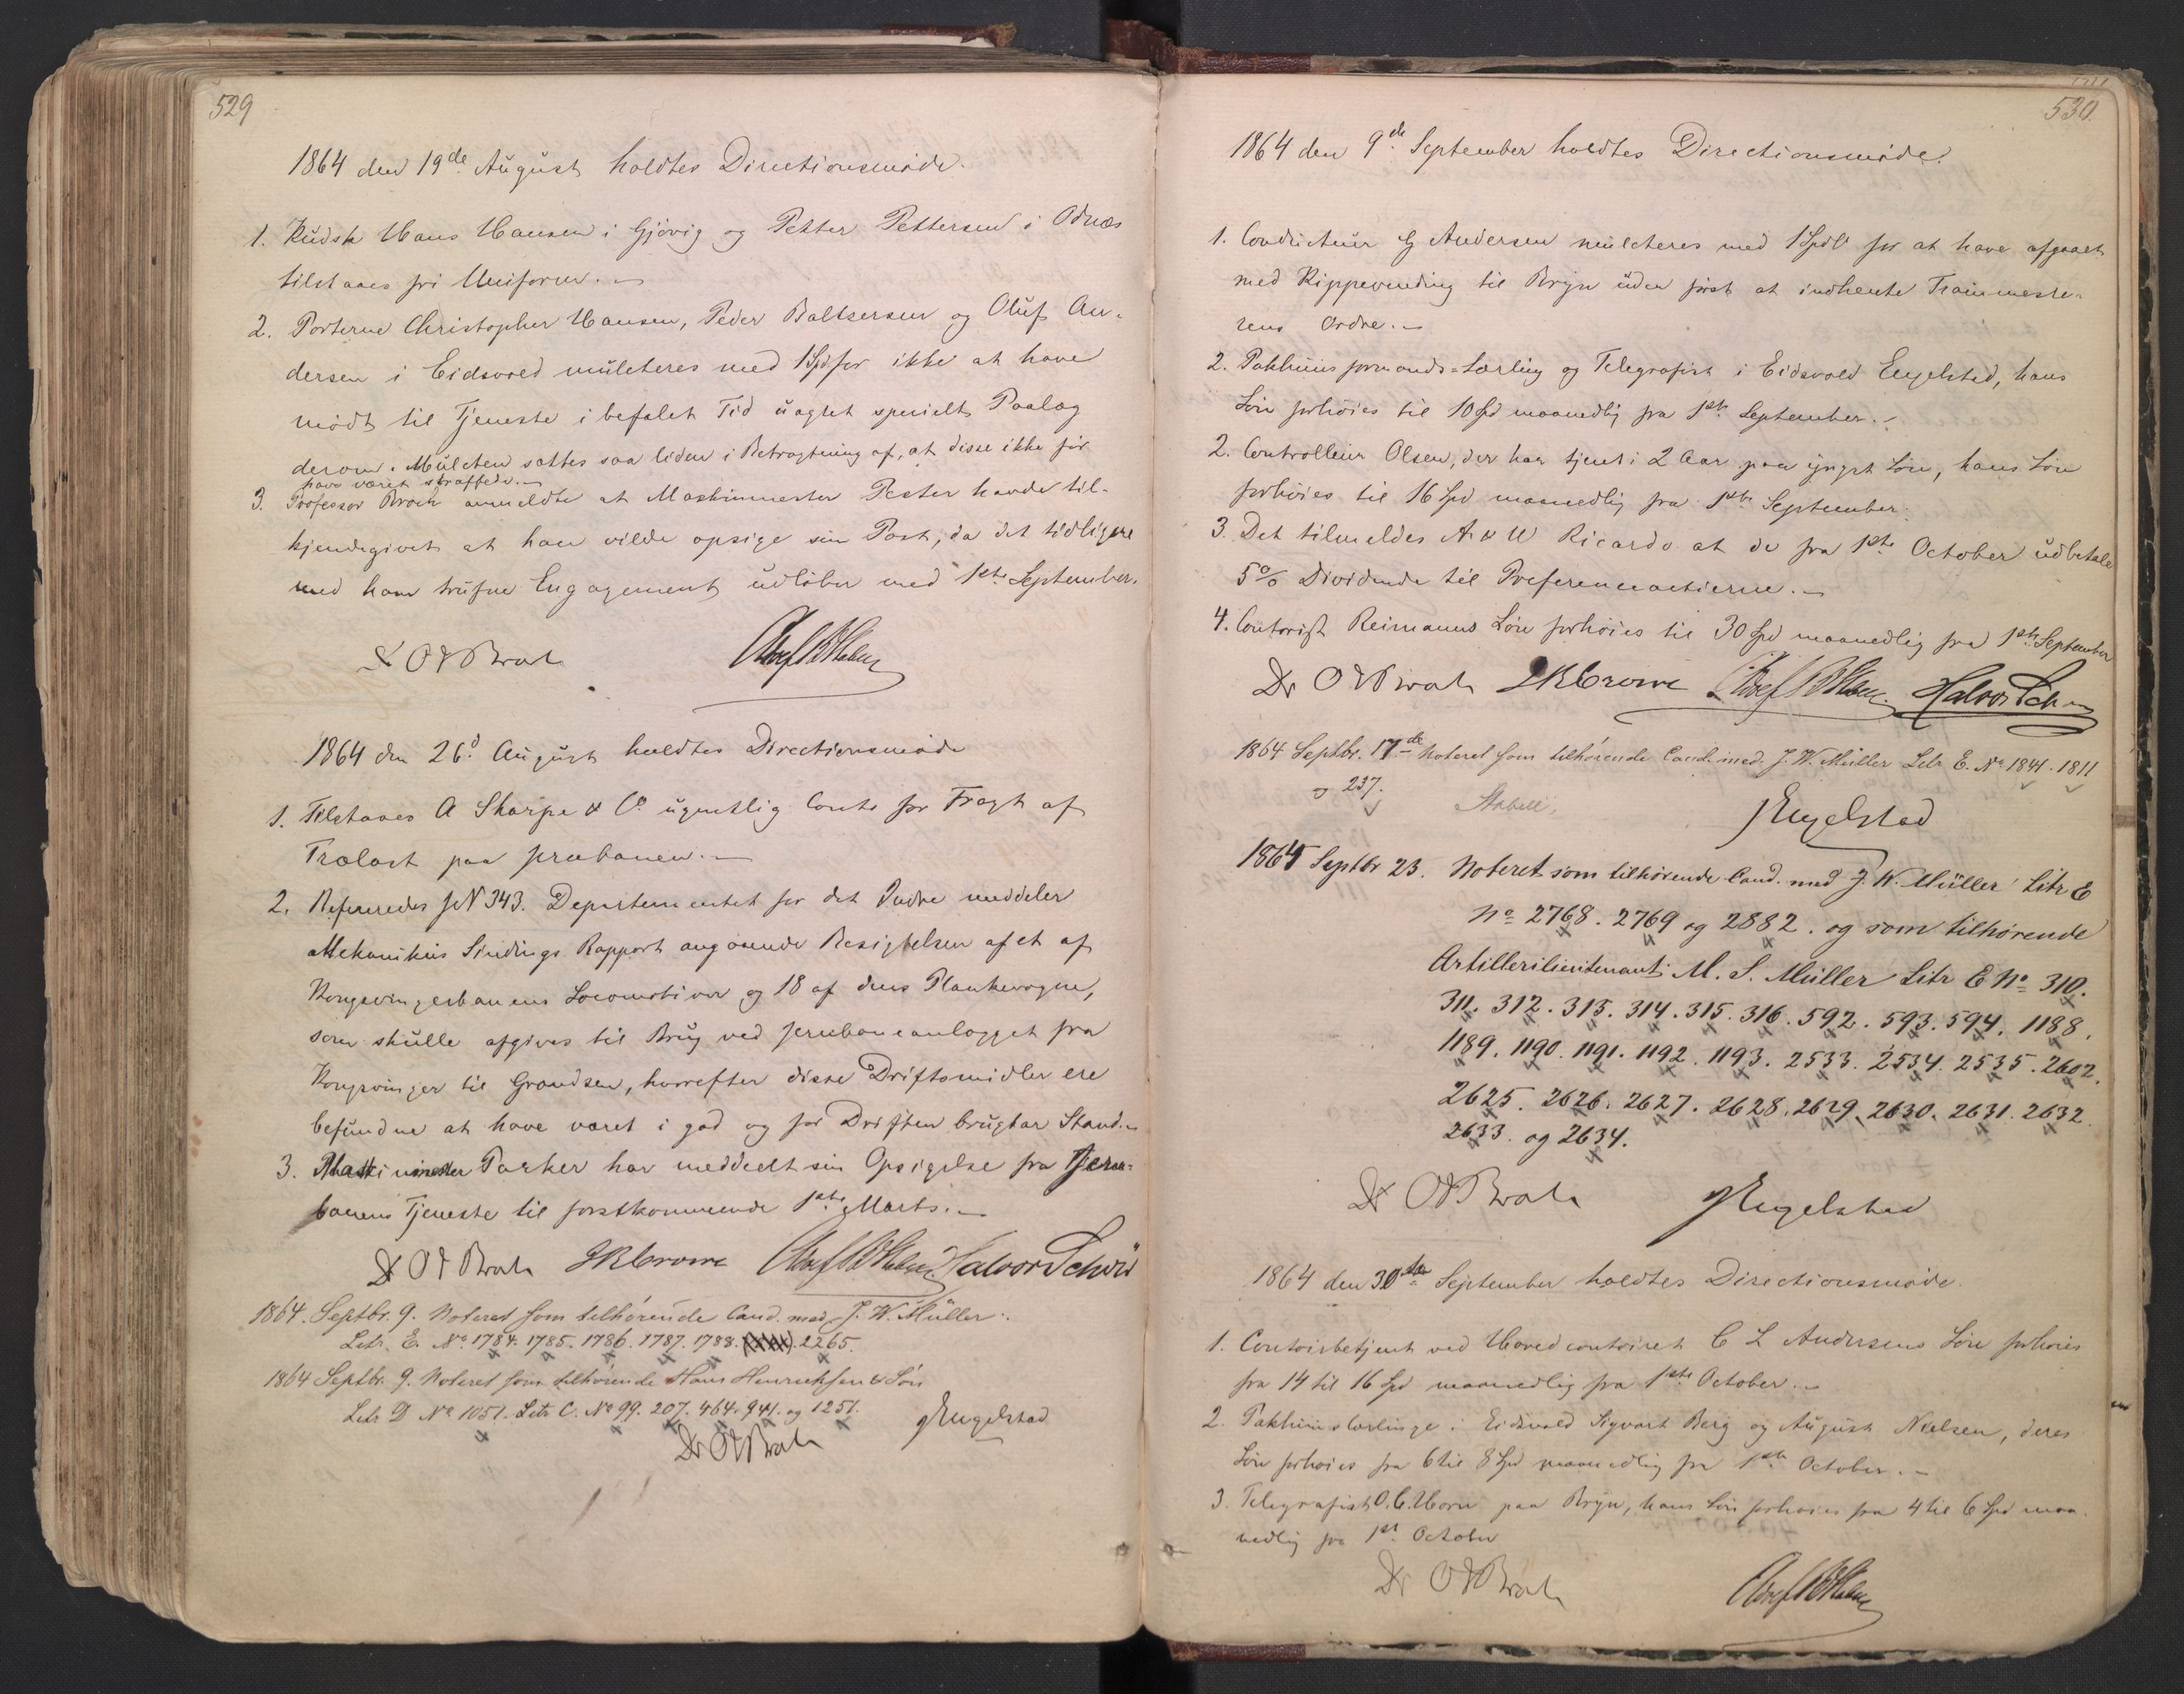 529
1864 den 19de August holdtes Directionsmøde.
1. Kudsk Hans Hansen i Gjøvig og Petter Pettersen i Odnæs
tilstaaes fri Uniform.
2. Porterne Christopher Hansen, Peder Baltsersen og Oluf An-
dersen i Eidsvold mulcteres med 1 Spd for ikke at have
mødt til Tjeneste i befalet Tid uagtet specielt Paalæg
derom. Mulcten sattes saa liden i Betragtning af, at disse ikke før
have været straffede.
3. Professor Broch anmeldte at Maskinmester Pester havde til-
kjendegivet at han vilde opsige sin Post, da det tidligere
med ham trufne Engagement udløber med 1ste September.
Dr O J Broch
1864 den 26d August holdtes Directionsmøde
1. Tilstaaes A Sharpe & Co ugentlig Conto for Fragt af
Trælast paa Jernbanen.
2. Refereredes JN 343. Departementet for det Indre meddeler
Mekanikus Sindings Rapport angaaende Besigtelsen af et af
Kongsvingerbanens Locomotiver og 18 af dens Plankevogne,
som skulle afgives til Brug ved Jernbaneanlægget fra
Kongsvinger til Grændsen, hvorefter disse Driftsmidler ere
befundne at have været i god og for Driften brugbar Stand.
3. Maskinmester Parker har meddeelt sin Opsigelse fra Jern-
banens Tjeneste til førstkommende 1ste Marts.
Dr O J Broch JRCrowe Halvor Schou
1864. Septbr. 9. Noteret som tilhørende Cand. med. J. W. Müller.
Litr. E. No 1784. 1785. 1786. 1787. 1788. 2265.
1864 Septbr. 9. Noteret som tilhørende Hans Henricksen & Søn
Litr D No 1051. Litr C. No 99. 207. 464. 941. og 1251.
Engelstad
Dr O J Broch
530.
1864 den 9de September holdtes Directionsmøde.
1. Conducteur G Andersen mulcteres med 1 Spdlr for at have afgaaet
med Kippevending til Bryn uden først at indhente Trainmeste-
rens Ordre.
2. Pakhuusformands-Lærling og Telegrafist i Eidsvold Engelstad, hans
Løn forhøies til 10 Spd maanedlig fra 1ste September.
2. Controlleur Olsen, der har tjent i 2 Aar paa yngst Løn, hans Løn
forhøies til 16 Spd maanedlig fra 1ste September.
3. Det tilmeldes A & W Ricardo at de fra 1ste October udbetale
5% Dividende til Preferenceactierne.
4. Contorist Reimanns Løn forhøies til 30 Spd maanedlig fra 1ste September
Dr O J Broch JRCrowe Halvor Schou
1864 Septbr. 17de Noteret som tilhørende Cand. med. J. W. Müller Litr E. No 1841. 1811
og 237.
Engelstad
1864 Septbr 23. Noteret som tilhørende Cand. med J. W. Müller Litr E
No 2768. 2769 og 2882. og som tilhørende
Artillerilieutenant M. S. Müller Litr E No 310.
311. 312. 313. 314. 315. 316. 592. 593. 594. 1188.
1189. 1190. 1191. 1192. 1193. 2533. 2534. 2535. 2602.
2625. 2626. 2627. 2628. 2629. 2630. 2631. 2632
2633. og 2634.
Dr O J Broch Engelstad
1864 den 30te September holdtes Directionsmøde.
1. Contoirbetjent ved Hovedcontoiret C L Andersens Løn forhøies
fra 14 til 16 Spd maanedlig fra 1ste October.
2. Pakhuuslærlinge i Eidsvold Sigvart Berg og August Nielsen, deres
Løn forhøies fra 6 til 8 Spd maanedlig fra 1ste October.
3. Telegrafist O. C. Horn paa Bryn, hans Løn forhøies fra 4 til 6 Spd maa-
nedlig fra 1st October
Dr O J Broch